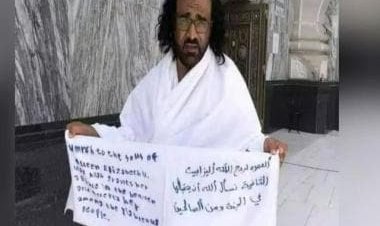 Umrah to the soul of
Queen Elizabeth II,
Grants her
in the heaven
her
among the righteous
People.
العمرة لروح الملكة إليزابيث
الثانية نسأل الله أن يتقبلها
في الجنة ومن الصالحين